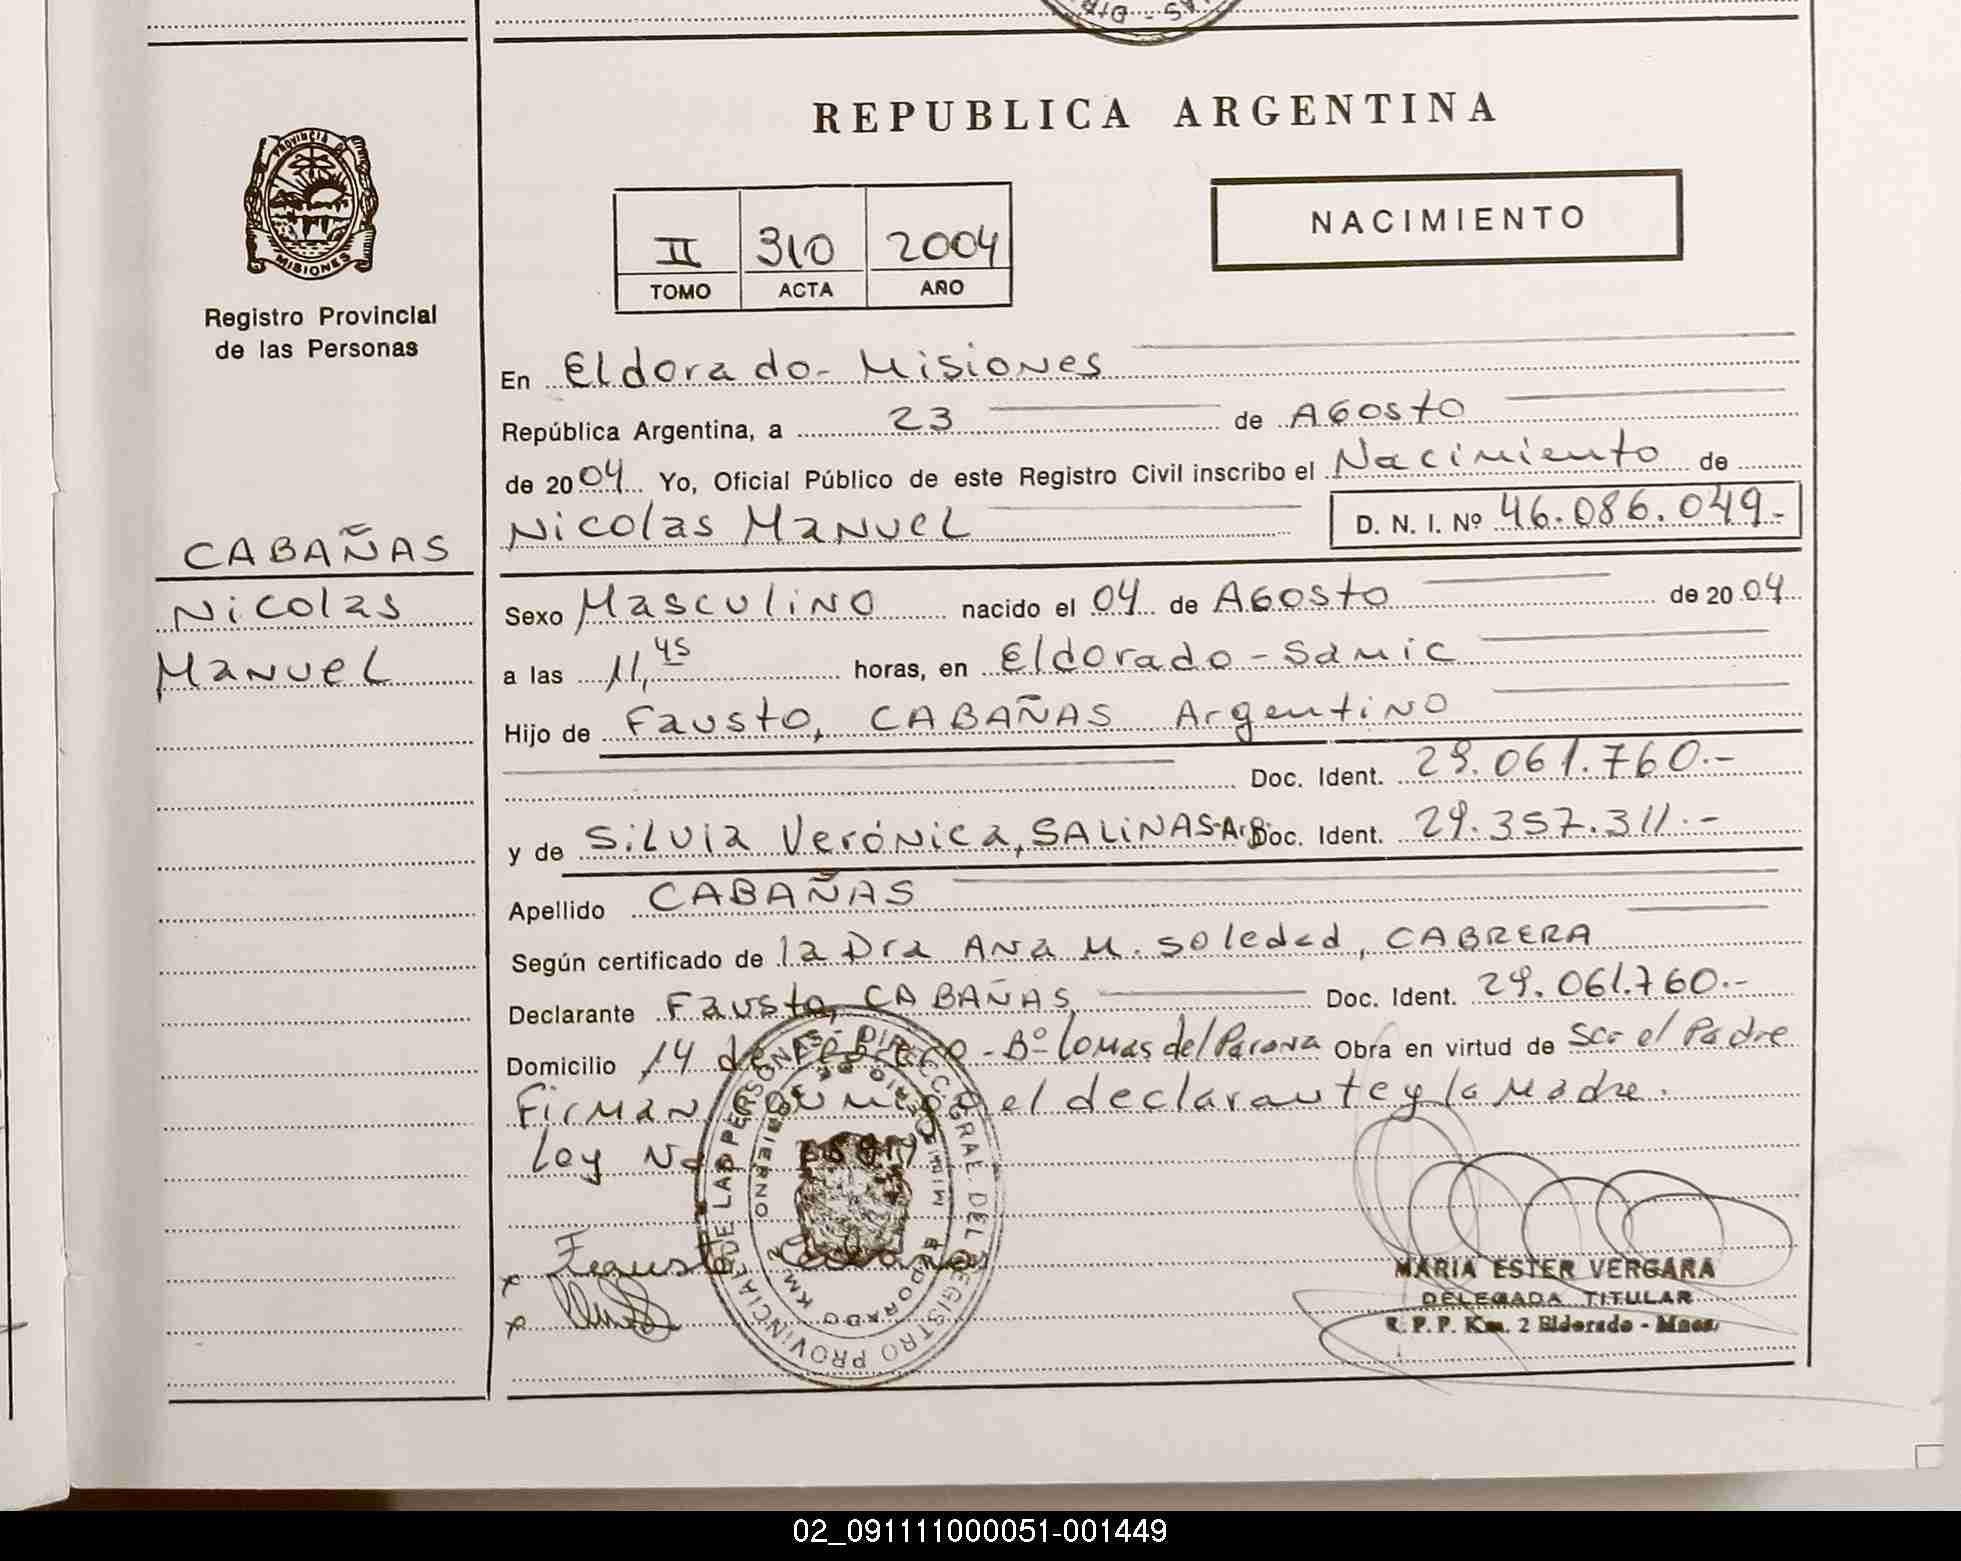 REPUBLICA ARGENTINA
PROVINCIA DE
MISIONES
Registro Provincial
de las Personas
II 310 2004
TOMO ACTA AÑO
NACIMIENTO
CABAÑAS
Nicolas
Manuel
En Eldorado - Misiones
República Argentina, a 23 de Agosto
de 2004 Yo, Oficial Público de este Registro Civil inscribo el Nacimiento de
Nicolas Manuel D. N. I. Nº 46.086.049.-
Sexo Masculino nacido el 04 de Agosto de 2004
a las 11,45 horas, en Eldorado - Samic
Hijo de Fausto, CABAÑAS Argentino
Doc. Ident. 29.061.760.-
y de Silvia Verónica, SALINAS-Arg Doc. Ident. 29.357.311.-
Apellido CABAÑAS
Según certificado de la Dra Ana M. Soledad, CABRERA
Declarante Fausto, CABAÑAS, Doc. Ident. 29.061.760.-
Domicilio 14 de Febrero - Bº Lomas del Parana Obra en virtud de Ser el Padre
Firman conmigo el declarante y la Madre.
Ley
Fausto Cabañas
REGISTRO PROVINCIAL DE LAS PERSONAS - DIRECC. GRAL. DEL
ELDORADO KM. 2
MARIA ESTER VERGARA
DELEGADA TITULAR
R. P. P. Km. 2 Eldorado - Mnes.
02_091111000051-001449